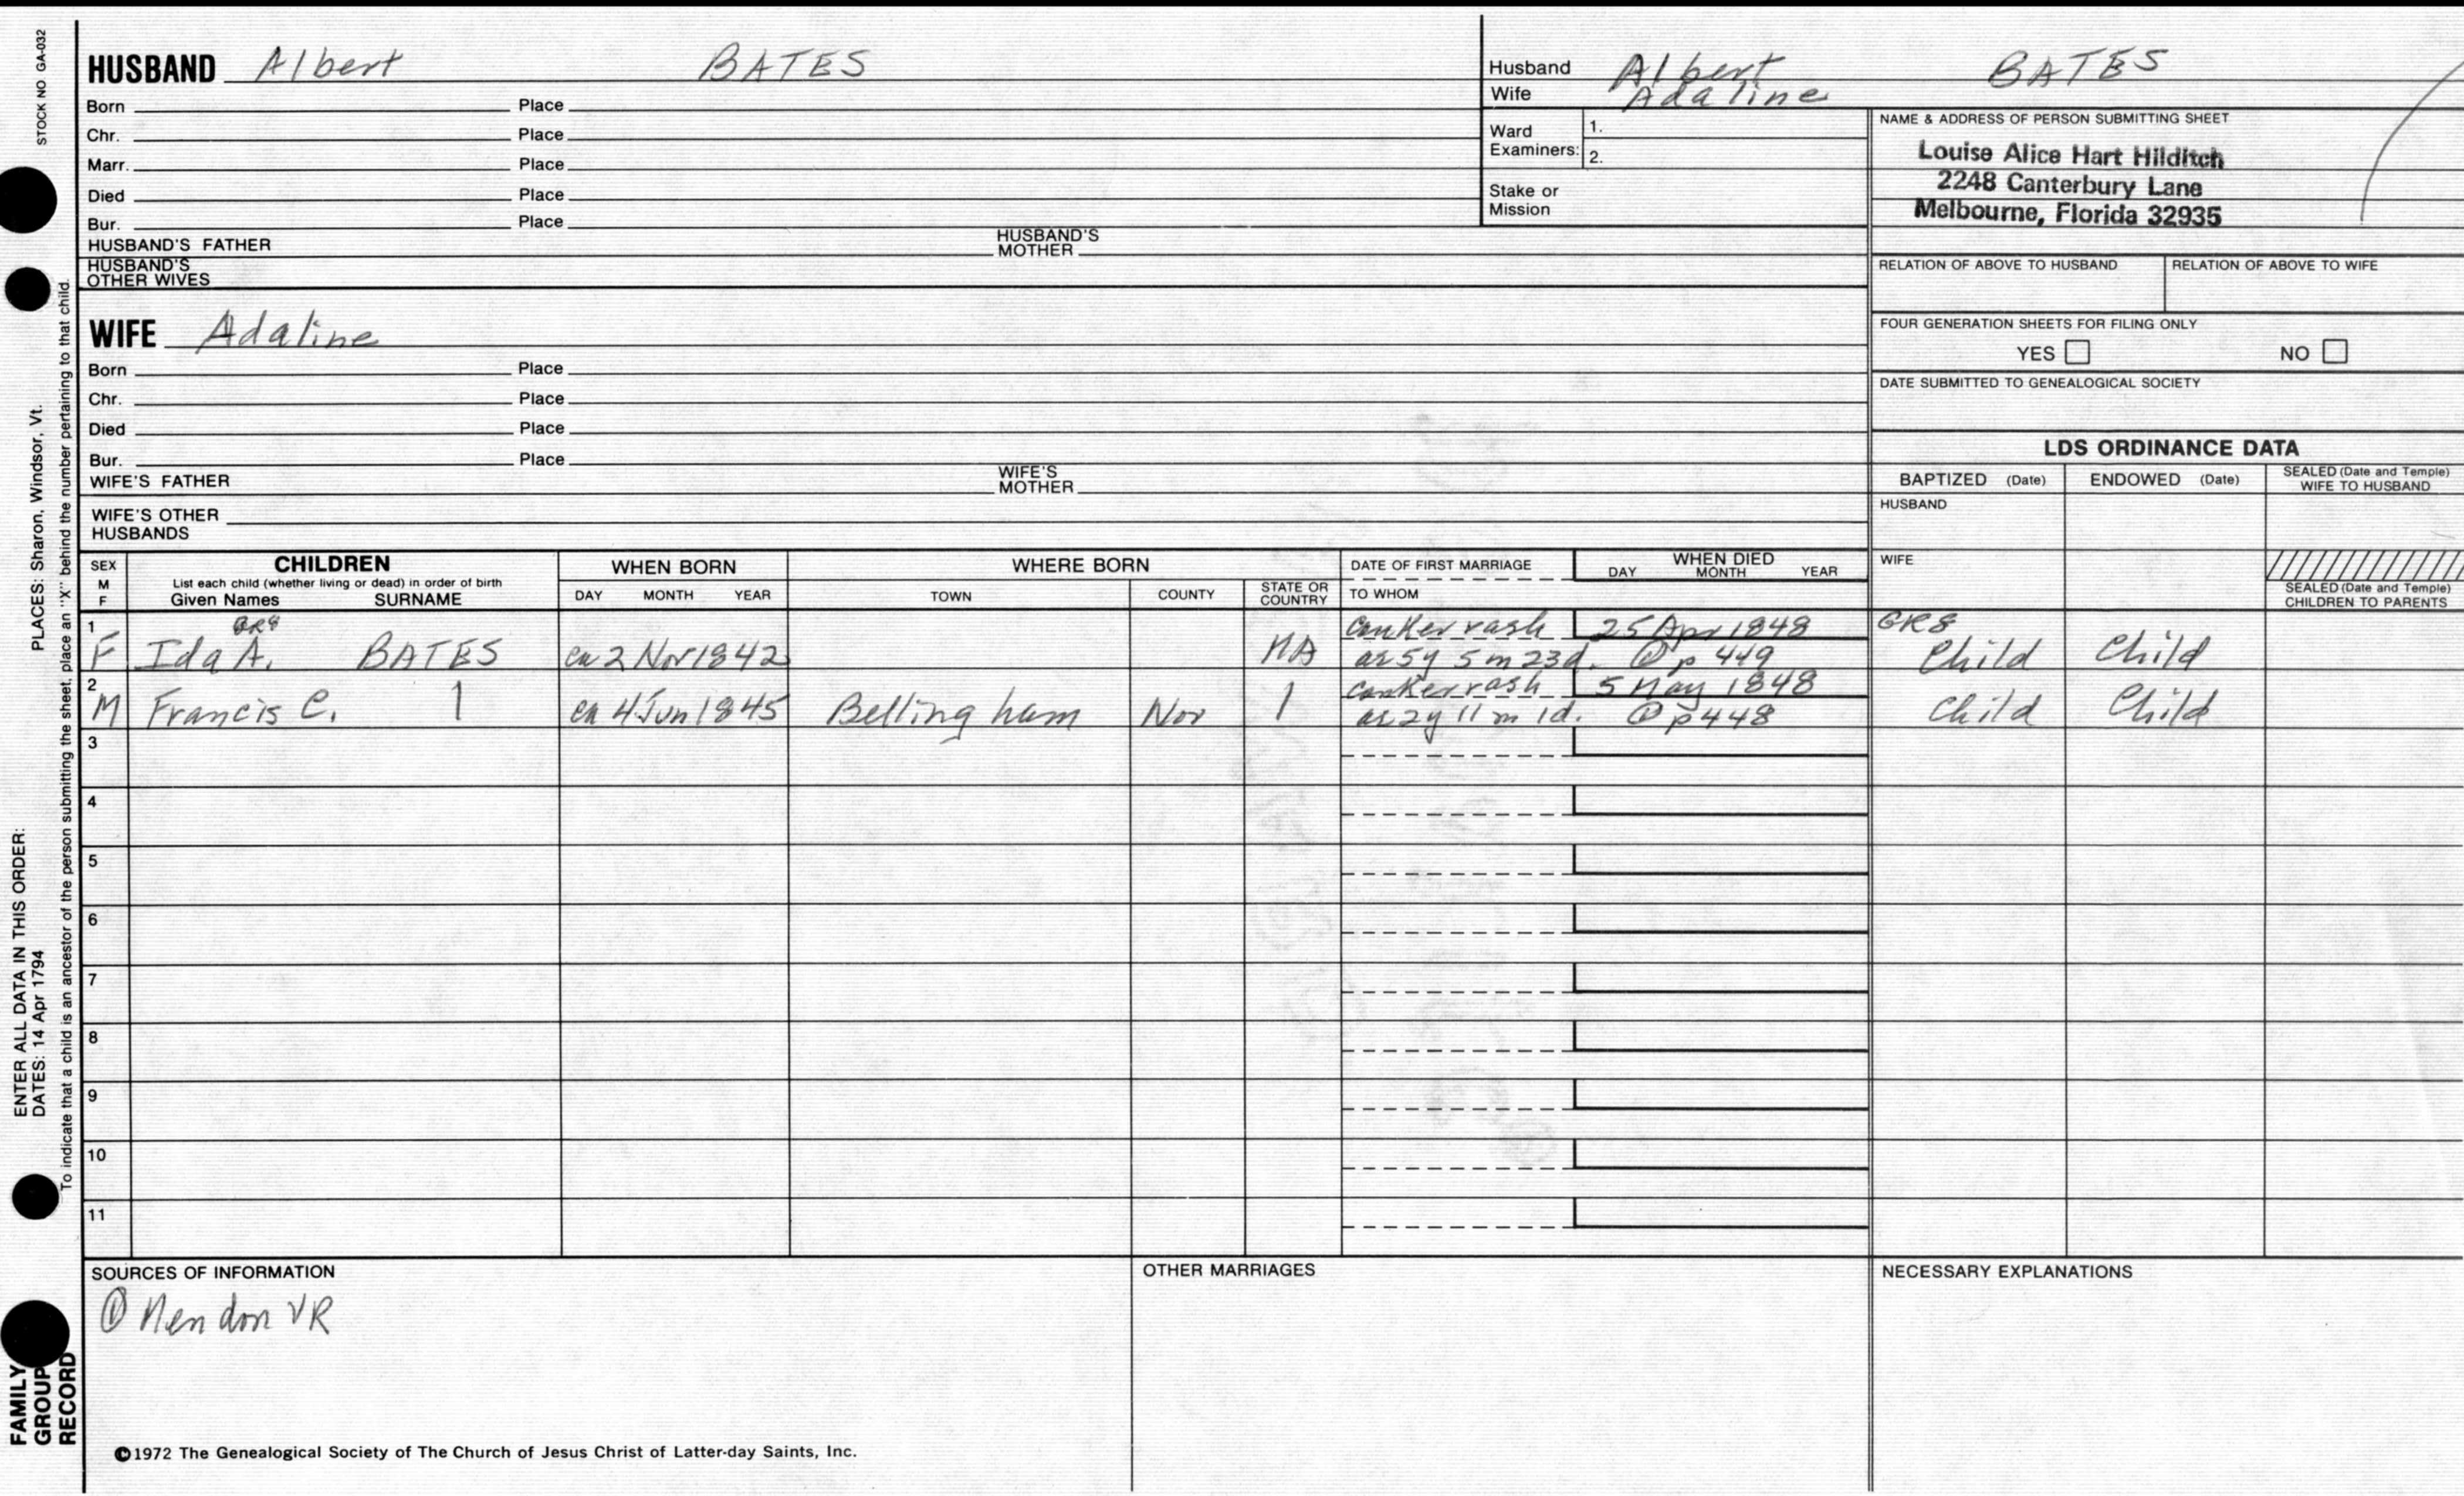 STOCK NO GA-032
HUSBAND Albert BATES
Born Place
Chr. Place
Marr. Place
Died Place
Bur. Place
HUSBAND'S FATHER HUSBAND'S MOTHER
HUSBAND'S OTHER WIVES
Husband Albert BATES
Wife Adaline
Ward Examiners: 1.
2.
Stake or Mission
NAME & ADDRESS OF PERSON SUBMITTING SHEET
Louise Alice Hart Hilditch
2248 Canterbury Lane
Melbourne, Florida 32935
RELATION OF ABOVE TO HUSBAND RELATION OF ABOVE TO WIFE
FOUR GENERATION SHEETS FOR FILING ONLY
YES NO
DATE SUBMITTED TO GENEALOGICAL SOCIETY
WIFE Adaline
Born Place
Chr. Place
Died Place
Bur. Place
WIFE'S FATHER WIFE'S MOTHER
WIFE'S OTHER HUSBANDS
LDS ORDINANCE DATA
BAPTIZED (Date) ENDOWED (Date) SEALED (Date and Temple) WIFE TO HUSBAND
HUSBAND
WIFE
SEALED (Date and Temple) CHILDREN TO PARENTS
SEX M F
CHILDREN
List each child (whether living or dead) in order of birth
Given Names SURNAME
WHEN BORN
DAY MONTH YEAR
WHERE BORN
TOWN COUNTY STATE OR COUNTRY
DATE OF FIRST MARRIAGE
TO WHOM
WHEN DIED
DAY MONTH YEAR
1 GR8 canker rash 25 Apr 1848 GR8
F Ida A. BATES ca 2 Nov 1842 MA ae 5y 5m 23d. ① p 449 Child Child
2 canker rash 5 May 1848
M Francis C. ca 4 Jun 1845 Bellingham Nor ae 2y 11m 1d. ① p 448 Child Child
3
4
5
6
7
8
9
10
11
SOURCES OF INFORMATION
① Mendon VR
OTHER MARRIAGES
NECESSARY EXPLANATIONS
©1972 The Genealogical Society of The Church of Jesus Christ of Latter-day Saints, Inc.
PLACES: Sharon, Windsor, Vt.
ENTER ALL DATA IN THIS ORDER:
DATES: 14 Apr 1794
To indicate that a child is an ancestor of the person submitting the sheet, place an "X" behind the number pertaining to that child.
FAMILY
GROUP
RECORD